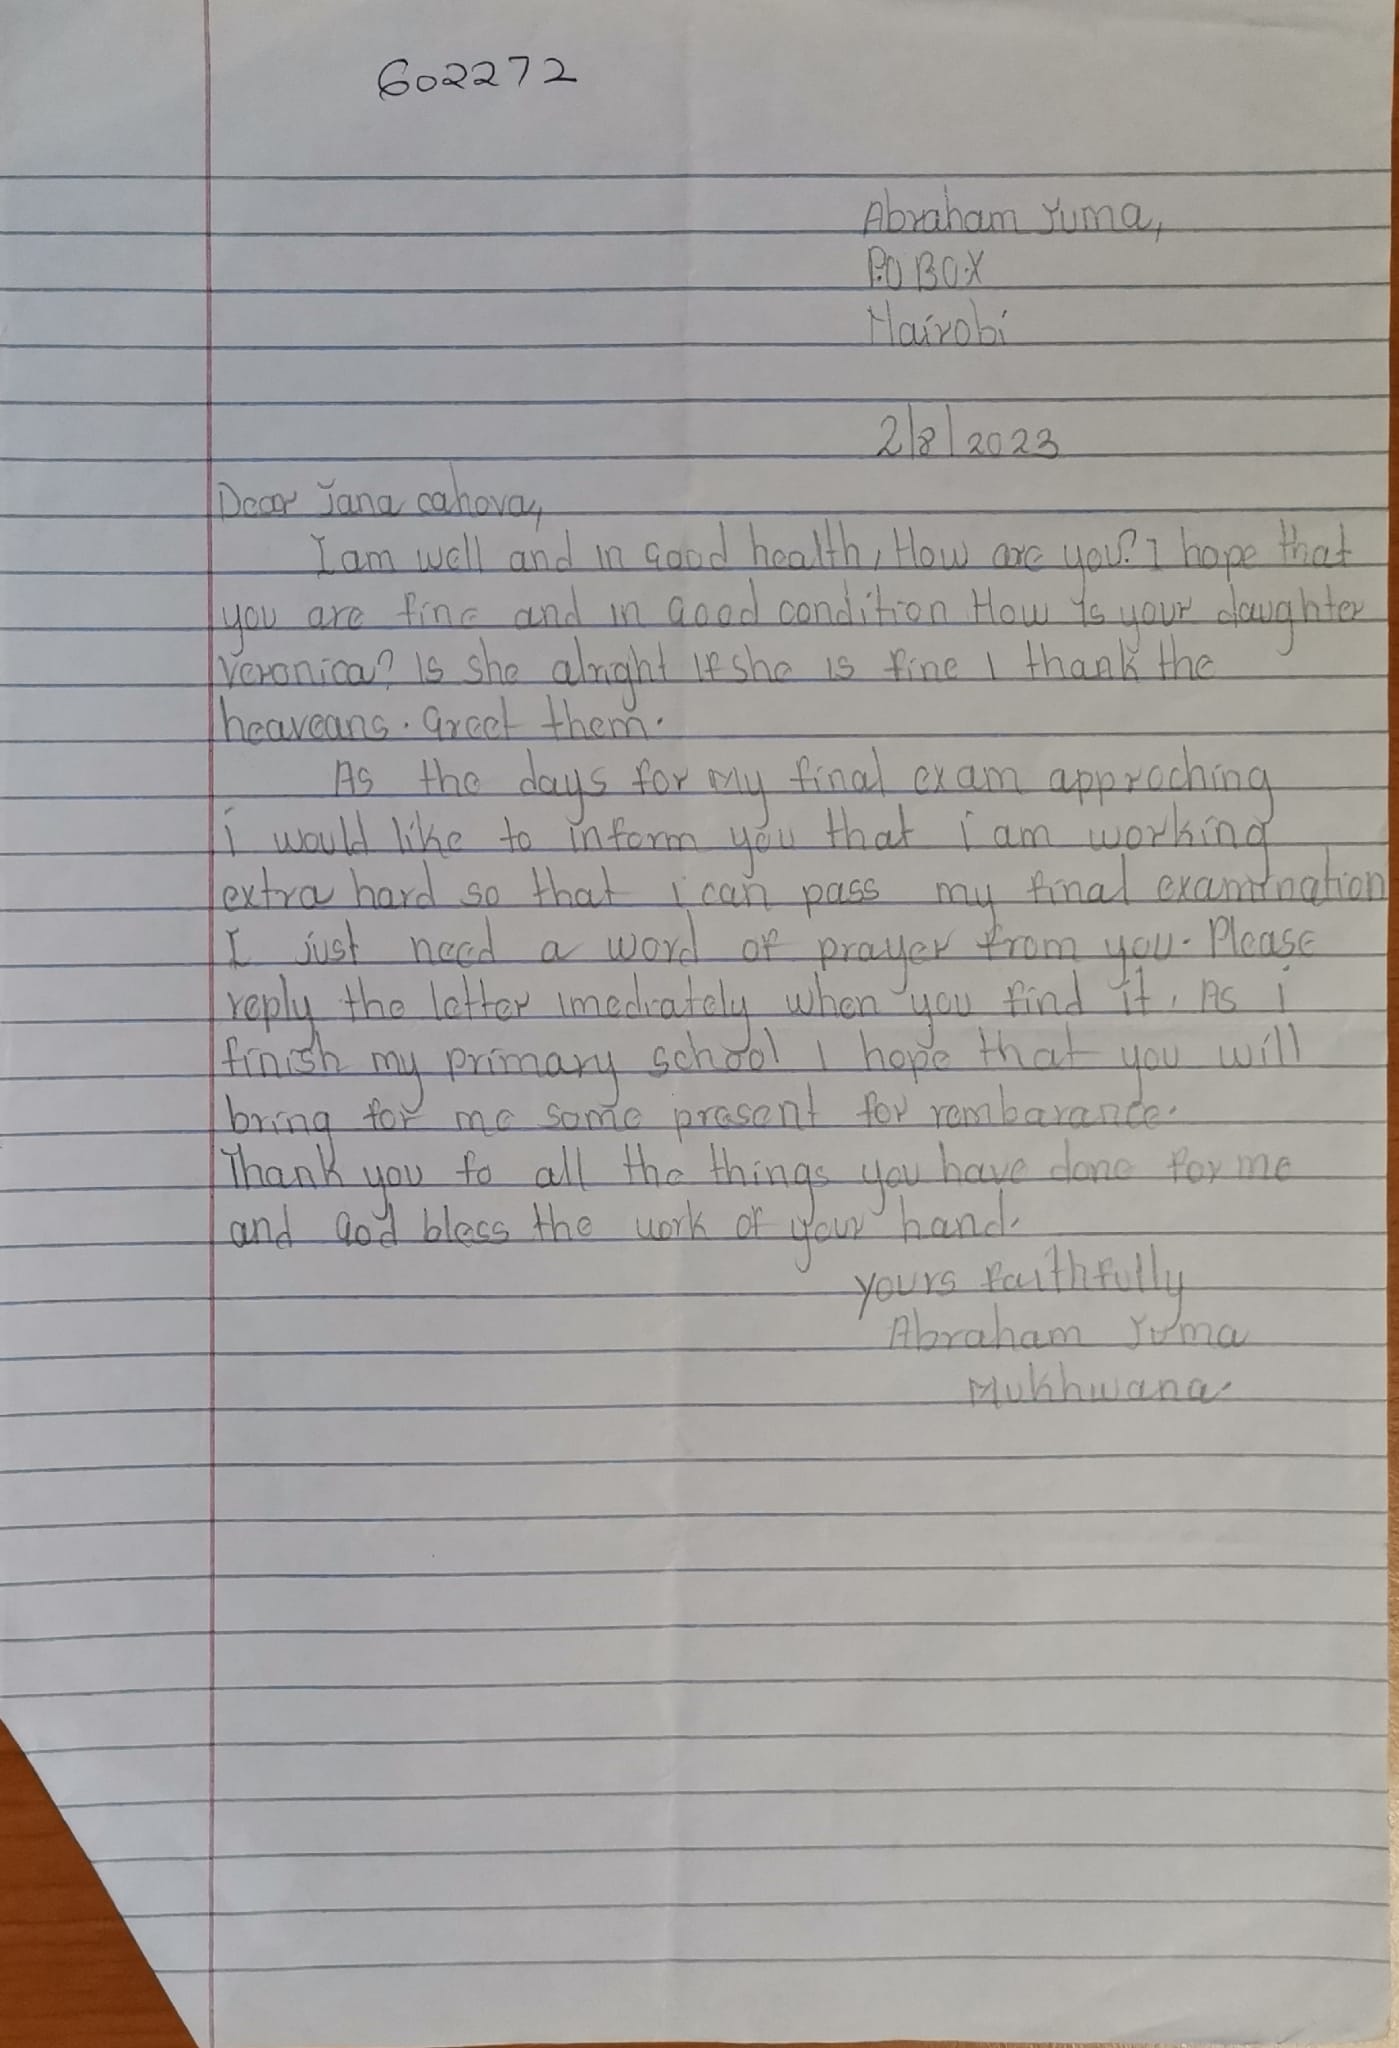 602272
Abraham Juma,
P.O BOX
Nairobi
2/8/2023
Dear Jana cahova,
I am well and in good health, How are you? I hope that
you are fine and in good condition How is your daughter
veronica? Is she alright If she is fine I thank the
heaveans. Greet them.
As the days for my final exam approching
i would like to inform you that i am working
extra hard so that i can pass my final examination
I just need a word of prayer from you. Please
reply the letter imediately when you find it. As i
finish my primary school I hope that you will
bring for me some present for rembarance.
Thank you fo all the things you have done for me
and god bless the work of your hand.
yours faithfully
Abraham Juma
Mukhwana.